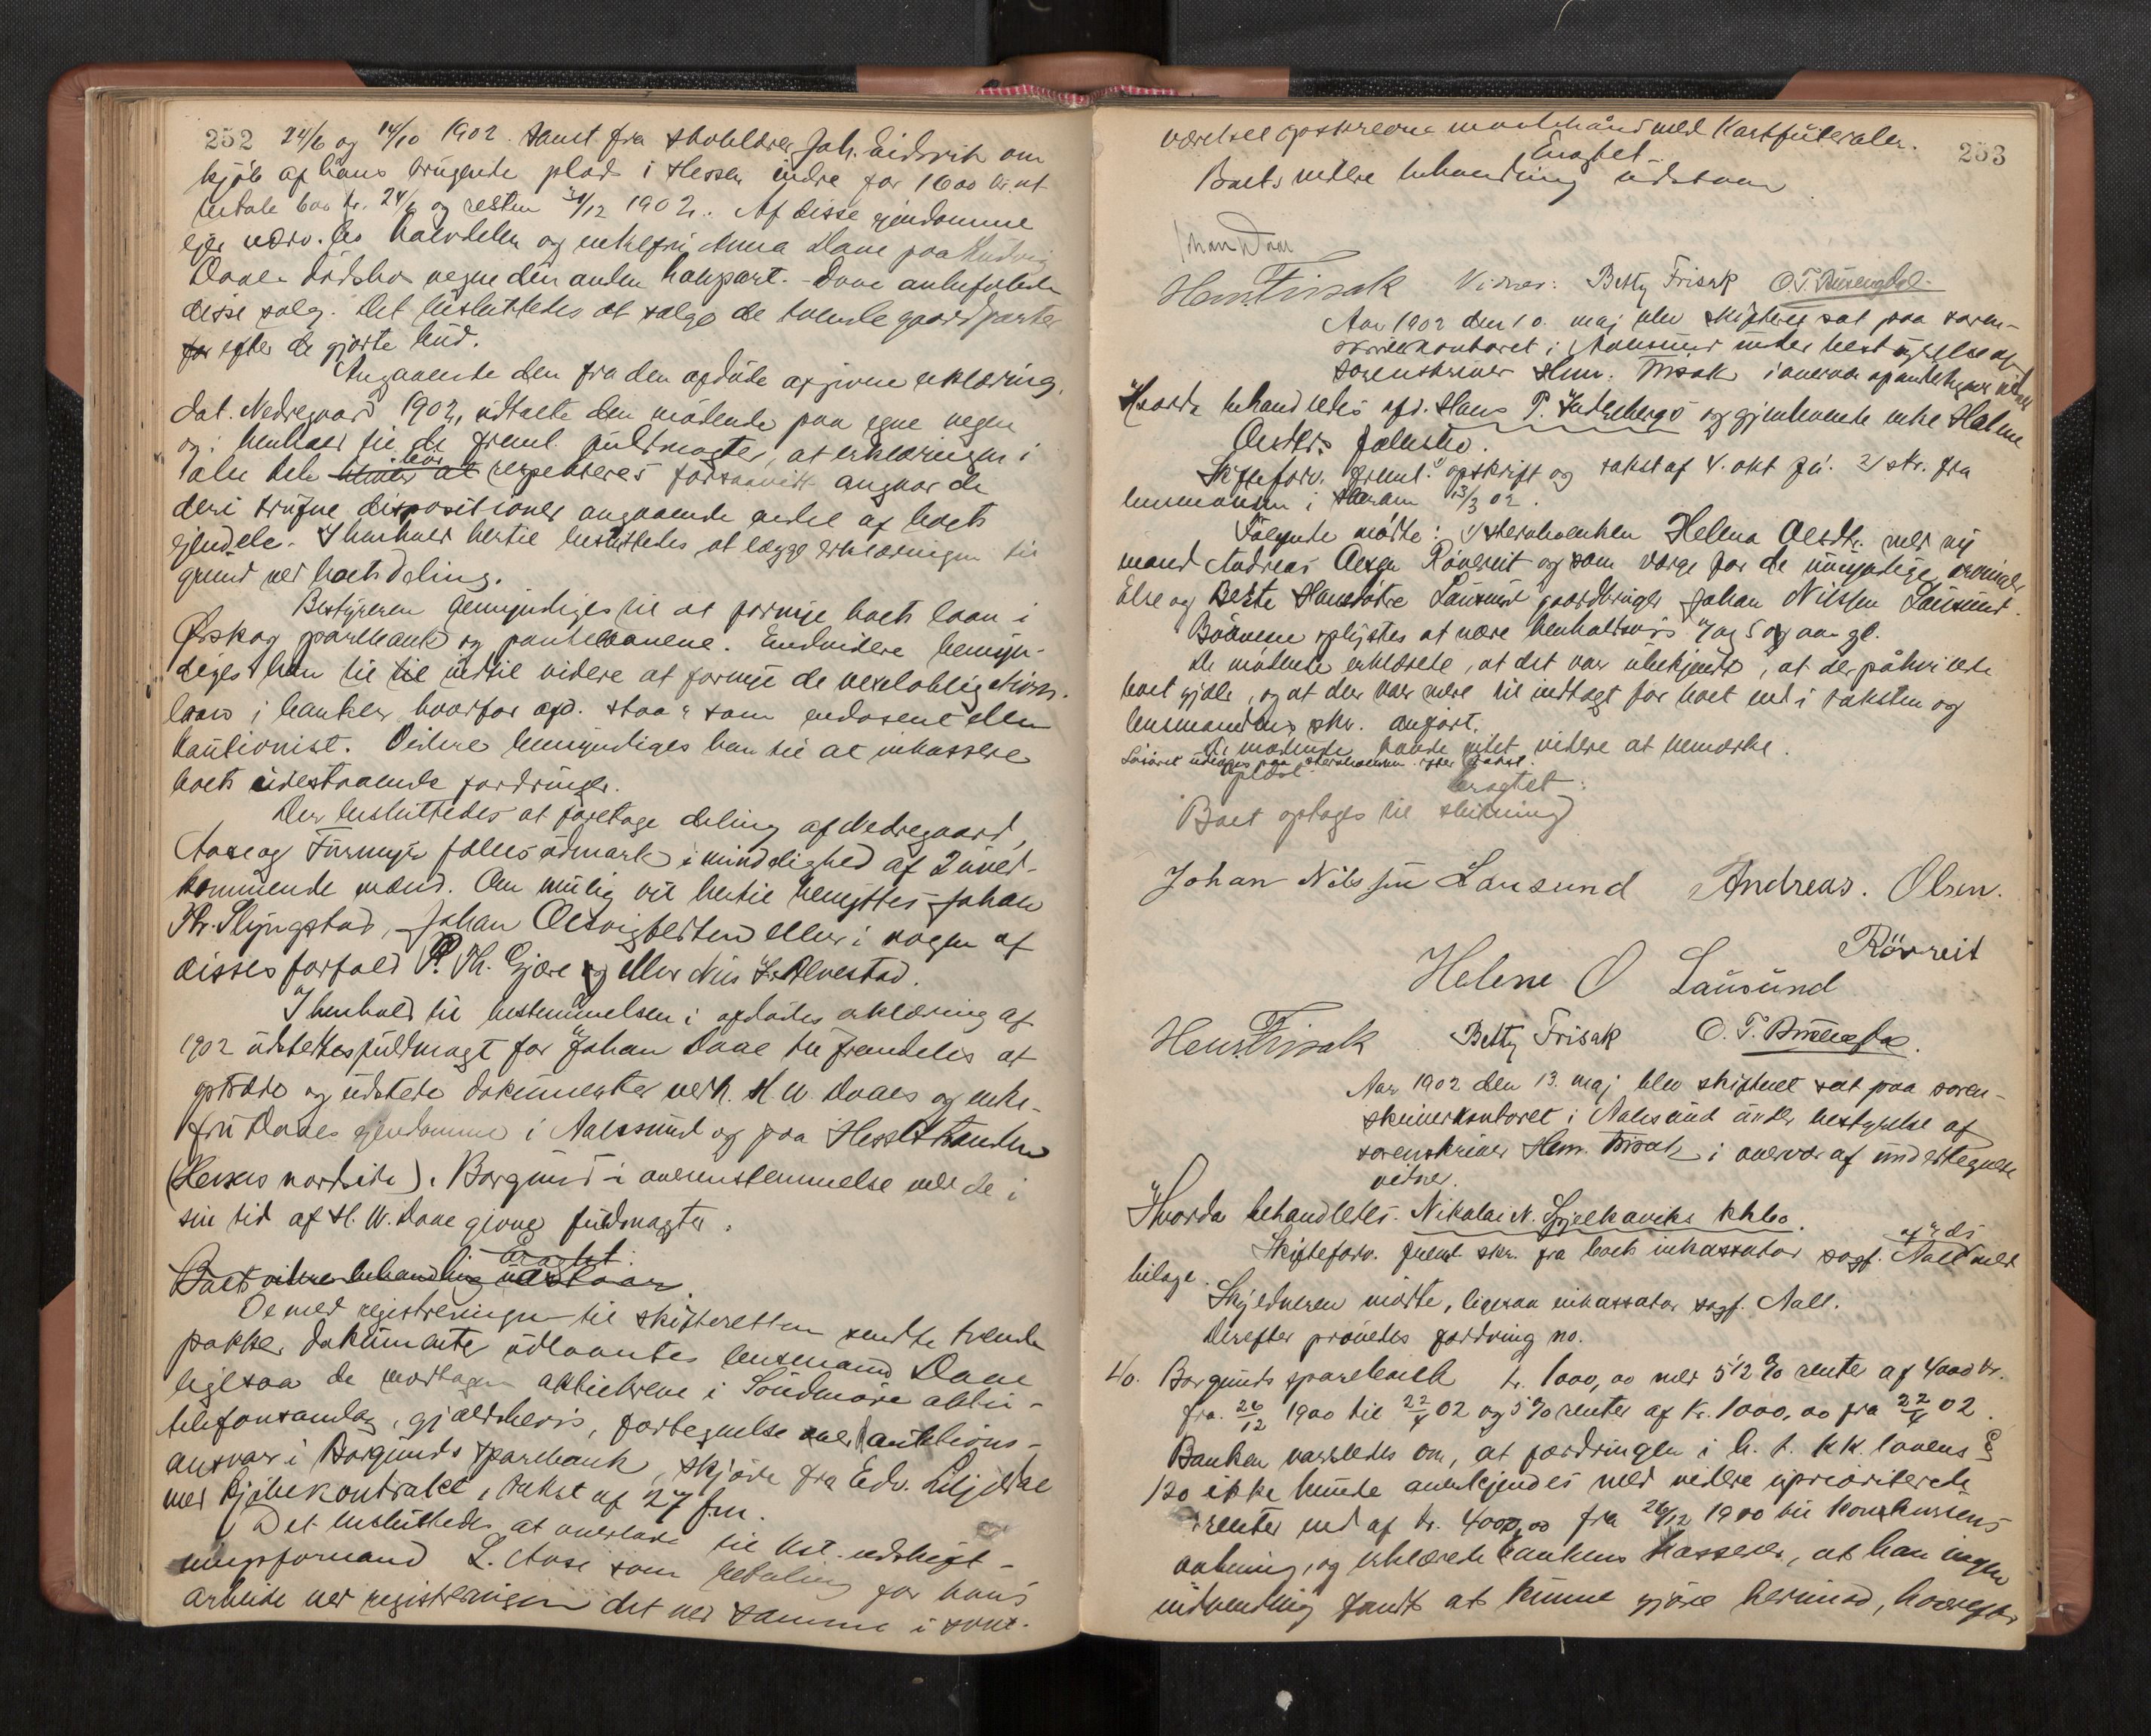 252 24/6 og 14/10 1902. Samt fra skoblærer Joh. Eidsvik om
kjöb af hans brugende plads i Hessen indre for 1600 kr. at
betale 600 kr. 24/6 og resten 31/12 1902. Af disse eiendomme
eier halvdelen og enkefru Anna Daae paa Ludvig
Daaes dödsbos vegne den anden halvpart. - Daae anbefalede
disse salg. Det besluttedes at sælge de tvende gaardparter
for efter de gjorte bud.
Angaaende den fra den afdøde afgivne erklæring,
dat. Nedregaard 1902, udtalte den mödende paa egne vegne
og i henhold til de freml. fuldmagter, at erklæringen i
alle dele bör respekteres forsaavidt angaar de
deri trufne dispositioner angaaende endel af boets
eiendele. I henhold hertil besluttedes at lægge erklæringen til
grund ved boets deling.
Bestyreren bemyndiges til at fornye boets laan i
Ørskog sparebank og pantelaanene. Endvidere bemyn-
diges han til til indtil videre at fornye de vexelobligations-
laan i banker, hvorfor afd. staar som endosent eller
kautionist. Videre bemyndiges han til at inkassere
boets udestaaende fordringer.
Der besluttedes at foretage deling af Nedregaard,
Aase og Furmyr fælles udmark i mindelighed af 2 uved-
kommende mænd. Om mulig vil hertil benyttes Johan
Kr. Slyngstad, Johan Olsvigbesten eller i nogen af
disses forfald P. Th. Gjære og eller Nils Alvestad.
I henhold til bestemmelsen i afdödes erklæring af
1902 udstedtes fuldmagt for Johan Daae til fremdeles at
optræde og udstede dokumenter vedk. H. W. Daaes og enke-
fru Daaes eiendomme i Aalesund og paa Hesselstranden
(Hessens nordside) i Borgund i overensstemmelse med de i
sin tid af H. W. Daae givne fuldmagter.
Eragtet:
Boets videre behandling udstaar.
De med registreringen til skifteretten sendte tvende
pakker dokumenter udlaantes lensmand Daae
ligesaa de modtagne aktiebreve i Söndmöre aktie-
telefonsamlag, gjældsbevis, fortegnelse over kautions-
ansvar i Borgunds sparebank, skjöde fra Edv. Liljedal
med kjöbekontrakt, takst af 27 f.m.
Det besluttedes at overlade til kst. udskift-
ningsformand L. Aase som betaling for hans
arbeide ved registreringen det ved samme i sove-
253
værelset opskrevne med Kartfuteraler.
Eragtet
Boets videre behandling udstaar
Johan Daae
Hem Frisak Vidner: Betty Frisak O. T.
Aar 1902 den 10. maj blev skifteret sat paa soren-
skriverkontoret i Aalesund under bestyrelse af
sorenskriver Hem. Frisak i overvær af undertegnede vidner
Hvorda behandledes afd. Hans P. og gjenlevende enke Helene
Olsdtrs fællesbo.
Skifteforv. freml. opskrift og takst af 4. okt f.å. 2) skr. fra
lensmanden i Haram 13/3 02.
Fölgende mödte: Helena Olsdtr. med ny
mand Andreas Olsen Rövreit og som værge for de umyndige arvinger
Else og Berte Hansdötre Lausund gaardbruger Johan Nilssen Lausund.
Börnene oplystes at være henholdsvis 7 og 5 aar gl.
De mödende erklærede, at det var ubekjendt, at der påhvilede
boet gjæld, og at der var mere til indtægt for boet end i taksten og
lensmandens skr. anført.
De mødende havde intet videre at bemærke.
Lösöret udlagdes paa efter takst.
Eragtet:
Boet optages til slutning
Johan Nilssen Lausund Andreas. Olsen.
Rövreit
Helene O Lausund
Hem Frisak Betty Frisak O. T.
Aar 1902 den 13. maj blev skifteret sat paa soren-
skriverkontoret i Aalesund under bestyrelse af
sorenskriver Hem. Frisak i overvær af undertegnede
vidner.
Hvorda behandledes. Nikolai N. Spjelkaviks kkbo.
Skifteforv. freml. skr. fra boets inkassator sagf. Aall med
bilage.
Skyldneren mødte, ligesaa inkassator sagf. Aall.
Derefter prövedes fordring no.
40. Borgunds sparebank kr. 1000,00 med 5 1/2 % rente af 4000 kr.
fra 26/12 1900 til 22/4 02 og 5 % renter af kr. 1000,00 fra 22/4 02.
Banken varsledes om, at fordringen i h. t. kk. lovens §
120 ikke kunde anerkjendes med videre uprioriterede
renter end af kr. 4000,00 fra 26/12 1900 til konkursens
aabning, og erklærede bankens kasserer, at han ingen
indvending fandt at kunne gjöre herimod, hvorefter